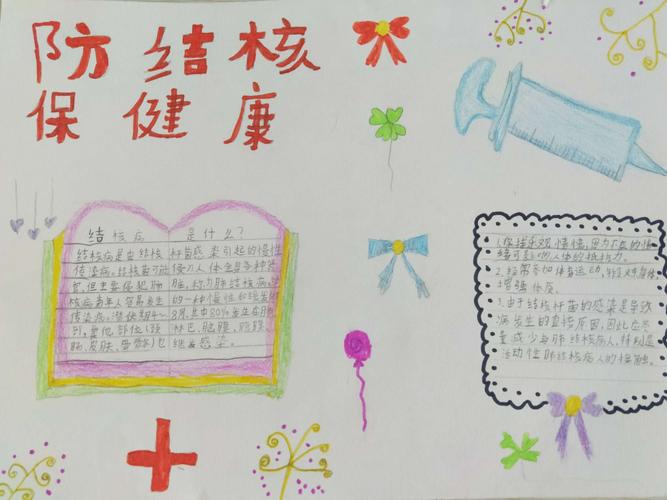 防结核
保健康
结核病是什么?
结核病是由结核杆菌感染引起的慢性
传染病。结核菌可能侵入人体全身各种器
官,但主要侵犯肺脏,称为肺结核病。结
核病青年人容易发生的一种慢性和
传染病。潜伏期4~8周,其中80%发生在肺
部,其他部位(颈淋巴、脑膜、腹膜、
肠、皮肤、骨骼)也继感染。
1.保持乐观情绪,因为不良的情
绪可影响人体的抵抗力。
2.经常参加体育运动,
增强体质。
3.由于结核杆菌的感染是导致
病发生的直接原因,因此应尽
量减少与肺结核病人,特别是
活动性肺结核病人的接触。